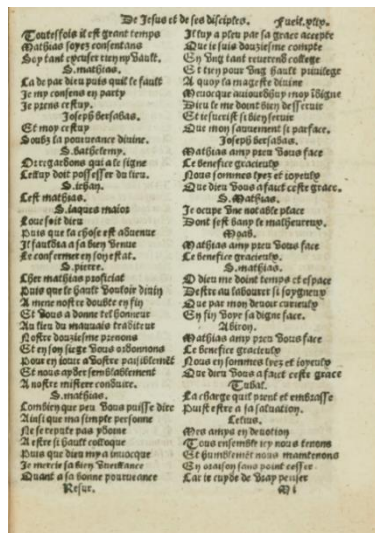 De Jesus et de ses disciples. Fueil. xliy.
Toutesfois il est grant temps
Mathias soyez consentans
Soy tant excuser rien ny vault.
S. mathias.
La de par dieu puis quil le fault
Je my consens en party
Je prens cestuy.
Joseph bersabas.
Et moy cestuy
Soubz la pourueance diuine.
S. barthelemy.
Or regardons qui a le signe
Cestuy doit posseder du lieu.
S. iehan.
Cest mathias.
S. iaques maior
Loue soit dieu
Puis que la chose est aduenue
Il fauldra a sa bien venue
Le confermer en son estat.
S. pierre.
Cher mathias proficiat
Puis que le hault vouloir diuin
A mene nostre doubte en fin
Et vous a donne tel honneur
Au lieu du mauuais traditeur
Nostre douziesme prenons
Et en son siege vous ordonnons
Pour en iouir a vostre paisiblemēt
Et nous ayder semblablement
A nostre mistere conduire.
S. mathias.
Combien que peu vous puisse dire
Ainsi que ma simple personne
Ne se repute pas ydoine
A estre si hault colloque
Puis que dieu my a inuocque
Je mercie sa bien vueillance
Quant a sa bonne pourueance
Resur.
Il luy a pleu par sa grace accepte
Que ie suis douziesme compte
En vng tant reuerend college
Et tien pour vng hault priuilege
A quoy la magestre diuine
Meuocque auiourdhuy moy īdigne
Dieu le me doint bien desseruir
Et iesucrist si bien seruir
Que mon sauuement si parface.
Joseph bersabas.
Mathias amy preu vous face
Le benefice gracieulx
Nous sommes lyez et ioyeulx
Que dieu vous a faict ceste grace.
S. Mathias.
Je ocupe vne notable place
Dont sest bany le malheureux.
Moab.
Mathias amy preu vous face
Le benefice gracieulx.
S. mathias.
O dieu me doint temps et espace
Destre au labourer si soygneux
Que par mon deuoir curieulx
En fin voye sa digne face.
Abiron.
Mathias amy preu vous face
Le benefice gracieulx
Nous en sommes lyez et ioyeulx
Que dieu vous a faict ceste grace
Tubal.
La charge quil prent et embrasse
Puist estre a sa saluation.
Celius.
Mes amys en deuotion
Tous ensemble icy nous tenons
Et humblemēt nous maintenons
En oraison sans point cesser
Car le cuyde de vray penser